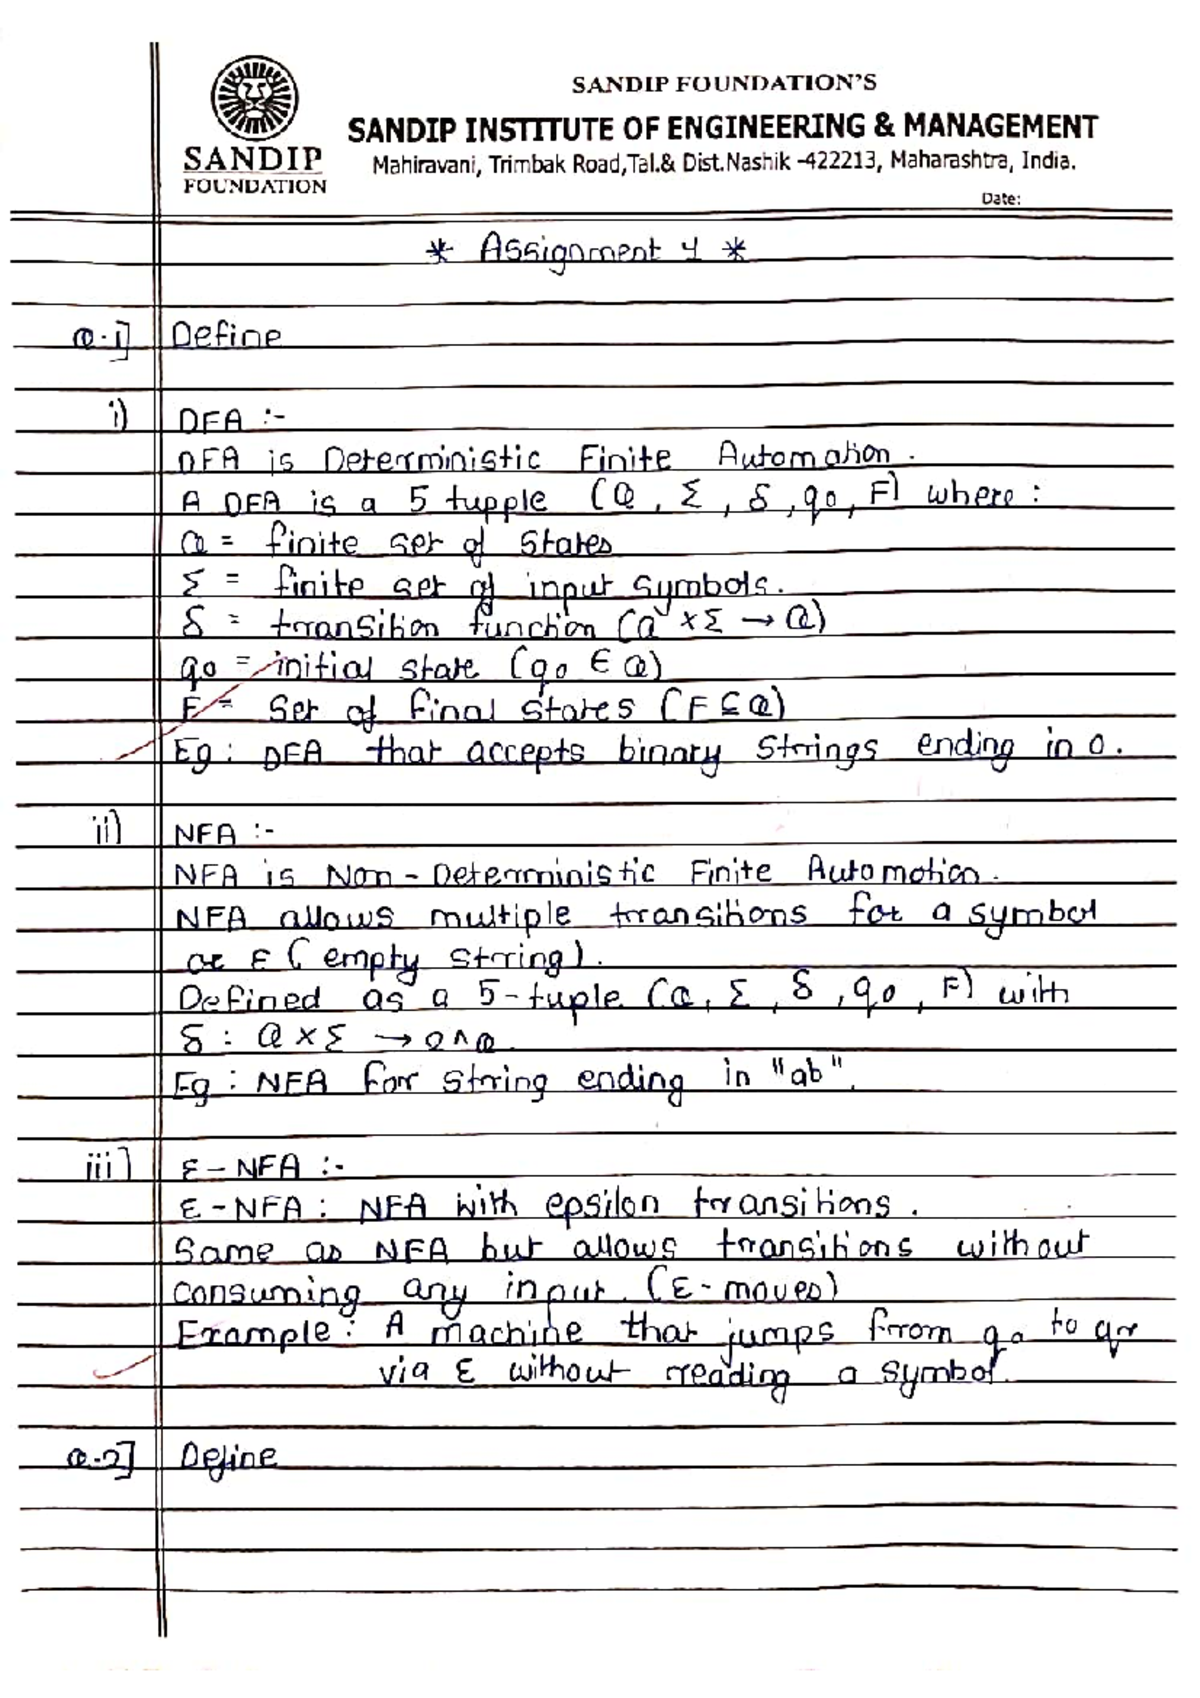 SANDIP
FOUNDATION
SANDIP FOUNDATION'S
SANDIP INSTITUTE OF ENGINEERING & MANAGEMENT
Mahiravani, Trimbak Road,Tal.& Dist.Nashik -422213, Maharashtra, India.
Date:
* Assignment 4 *
Q.1] Define
i) DFA :-
DFA is Deterministic Finite Automation.
A DFA is a 5 tupple (Q, Σ, δ, q0, F) where :
Q = finite set of states
Σ = finite set of input symbols.
δ = transition function (Q × Σ → Q)
q0 = initial state (q0 ∈ Q)
F = Set of final states (F ⊆ Q)
Eg : DFA that accepts binary strings ending in 0.
ii) NFA :-
NFA is Non-Deterministic Finite Automotion.
NFA allows multiple transitions for a symbol
or ε (empty string).
Defined as a 5-tuple (Q, Σ, δ, q0, F) with
δ : Q × Σ → 2^Q.
Eg : NFA for string ending in "ab".
iii] ε - NFA :-
ε - NFA : NFA with epsilon transitions.
Same as NFA but allows transitions without
consuming any input. (ε - moves)
Example : A machine that jumps from q0 to qr
via ε without reading a symbol.
Q.2] Define